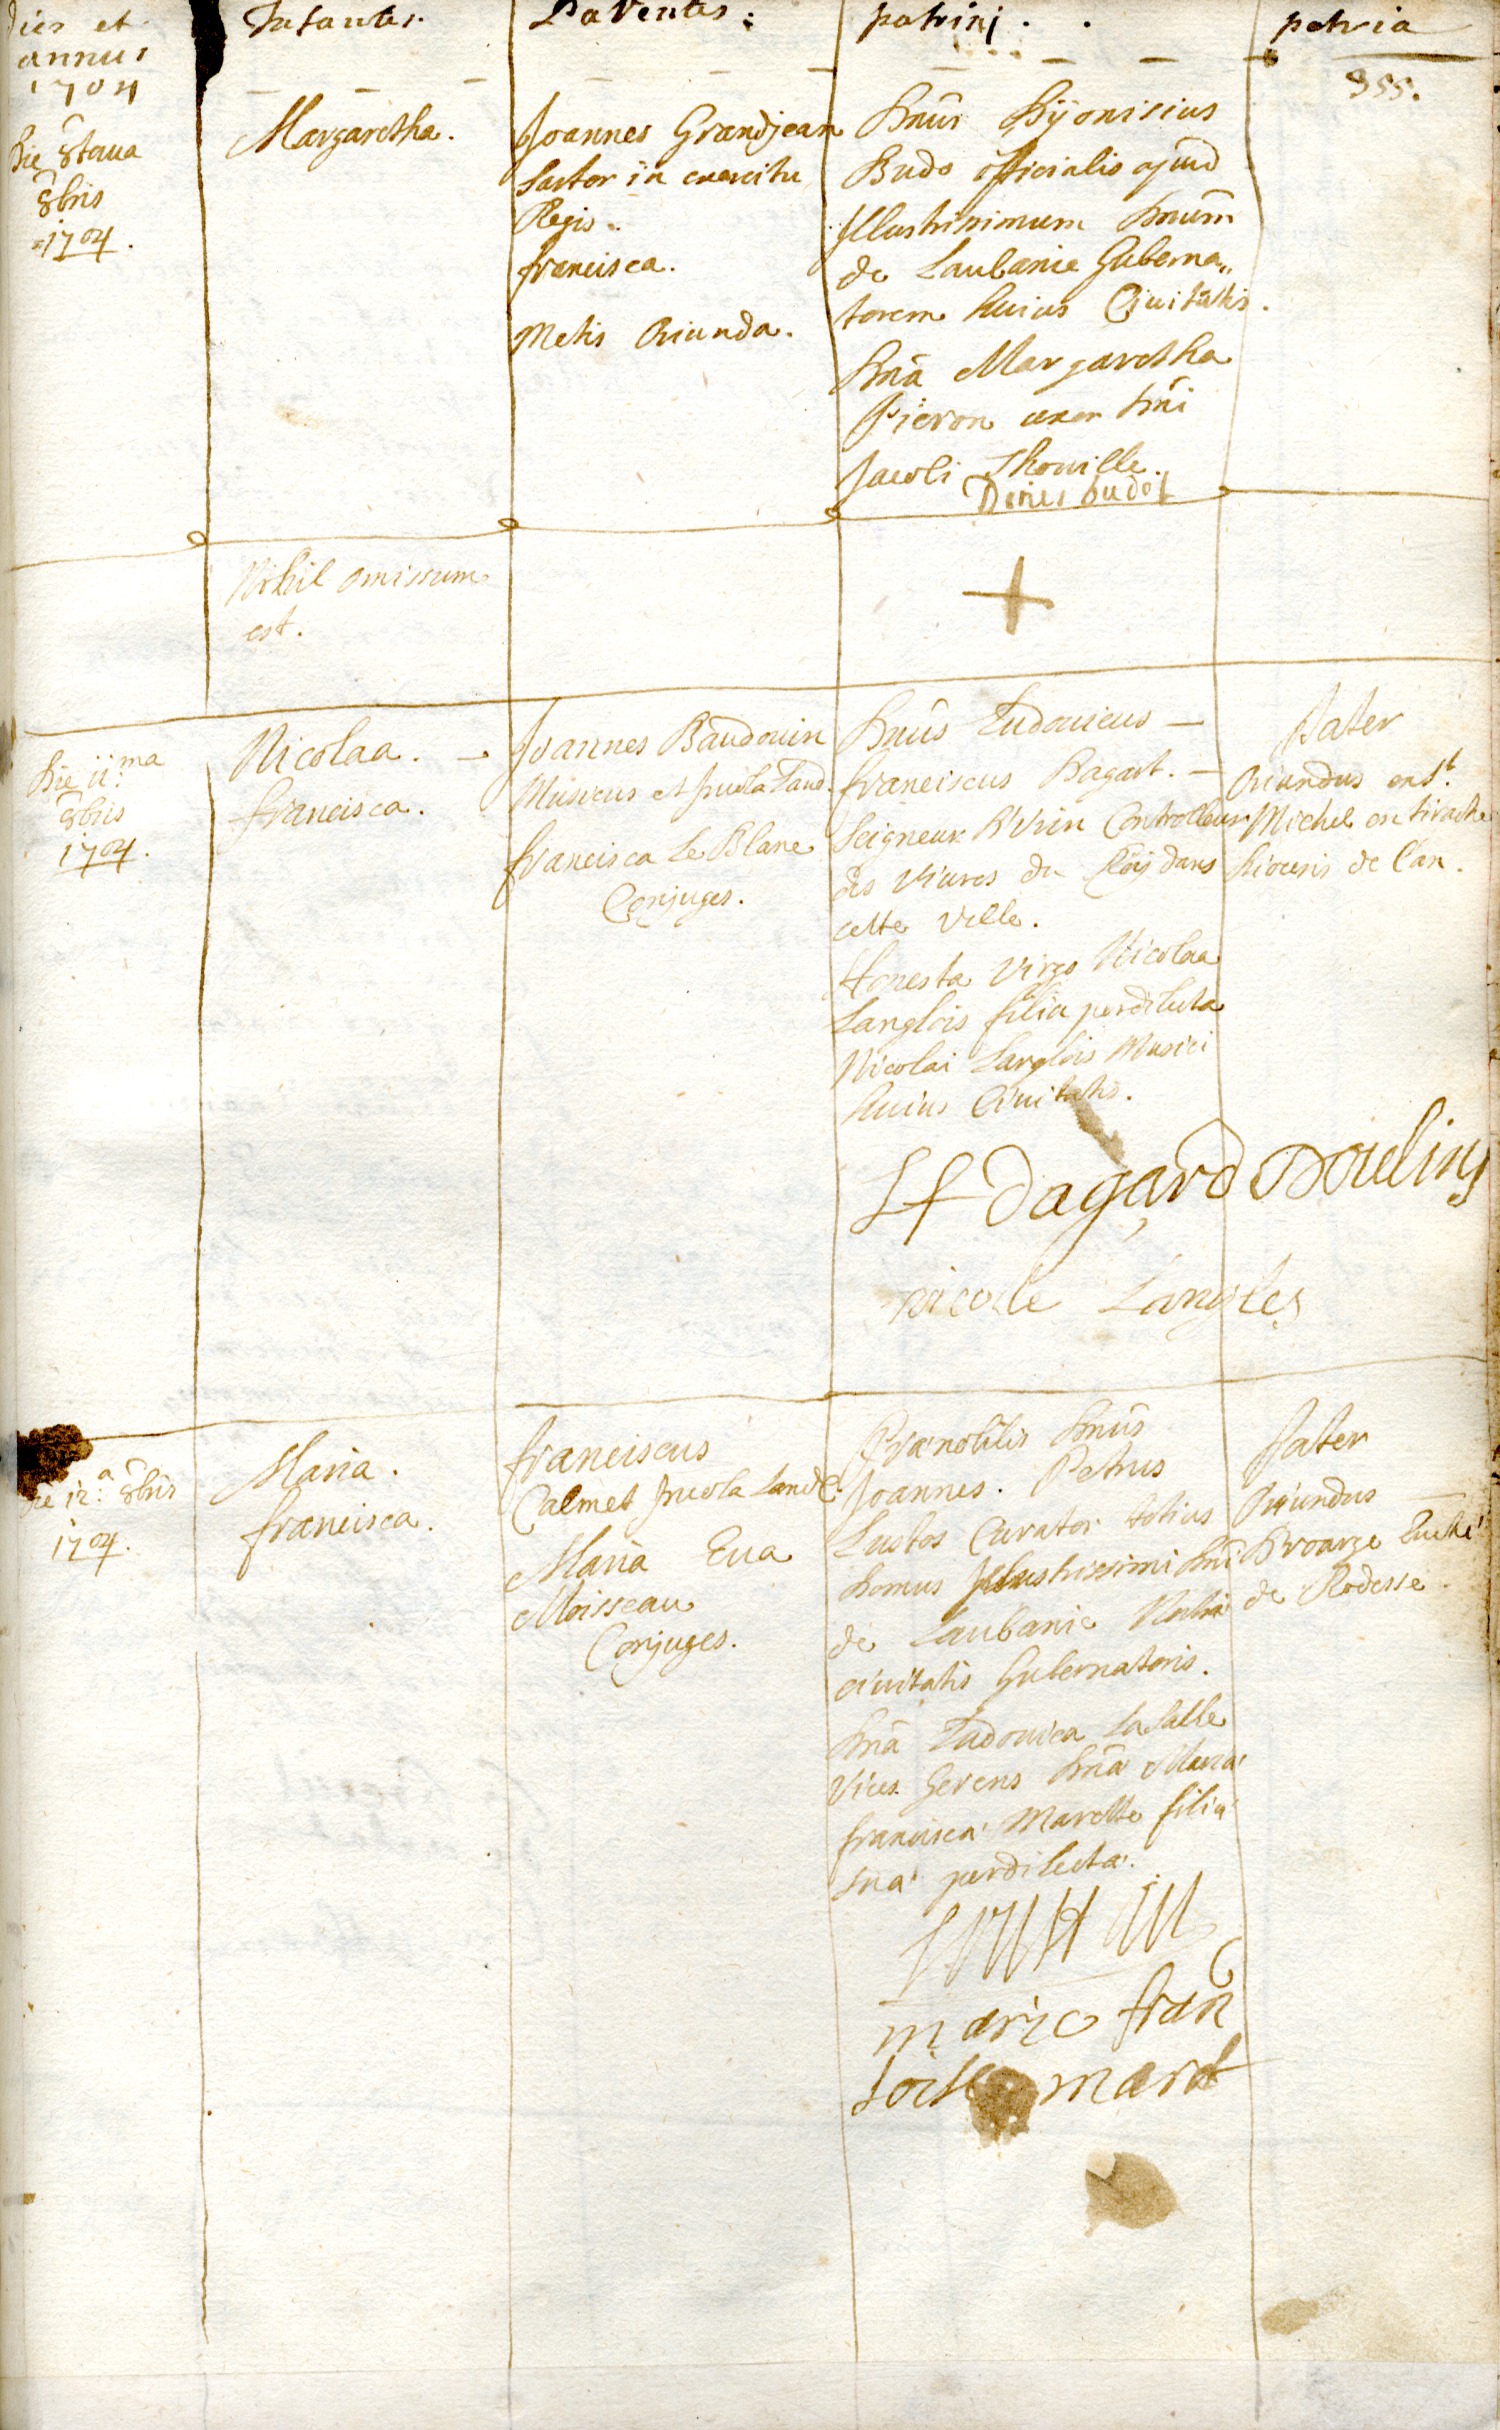 Dies et
annus
1704
Infantes.
Parentes:
patrinj.
patria
355.
Die 8taua
8bris
1704.
Margaretha.
Joannes Grandjean
Sartor in exercitu
Regis.
francisca.
Metis Oriunda.
Dnus Dijonisius
Budo officialis apud
Illustrissimum Dnum
de Laubanie Guberna„
torem huius Ciuitatis.
Dna Margaretha
Pieron uxor Dni
Jacobi Thouille.
Denis budot
Nihil omissum
est.
+
Die ii.ma
8bris
1704.
Nicolaa.
francisca.
Joannes Baudouin
Musicus et Incola Land.
francisca Le Blanc
Conjuges.
Dnus Ludouicus
franciscus Dagart.
Seigneur Controlleur
des Viures du Roy dans
cette Ville.
Honesta Virgo Nicolaa
Langlois filia perdilecta
Nicolai Langlois Musici
huius Ciuitatis.
Pater
Oriundus en St.
Michel en tirache
Diocesis de Lan.
Lf Dagard
nicolle Langles
Die 12.a 8bris
1704.
Maria.
francisca.
franciscus
Calmet Incola Land.
Maria Eua
Moisseau
Conjuges.
Prænobilis Dnus
Joannes. Petrus
Lustos Curator totius
Domus Illustrissimi Dni
de Laubanie
ciuitatis Gubernatoris.
Dna Ludouica LaSalle
Vices Gerens Dnæ Mariæ
franciscæ Marette filiæ
suæ perdilectæ.
Pater
Oriundus
de Rodesse.
marie fran
soisse maret